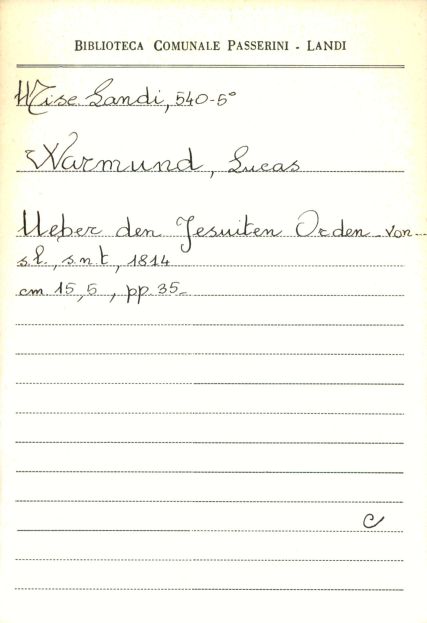 BIBLIOTECA COMUNALE PASSERINI - LANDI
Misc. Landi, 540-5°
Warmund, Lucas
Ueber den Jesuiten Orden - von -
s.l., s.n.t, 1814
cm. 15,5, pp. 35-
C